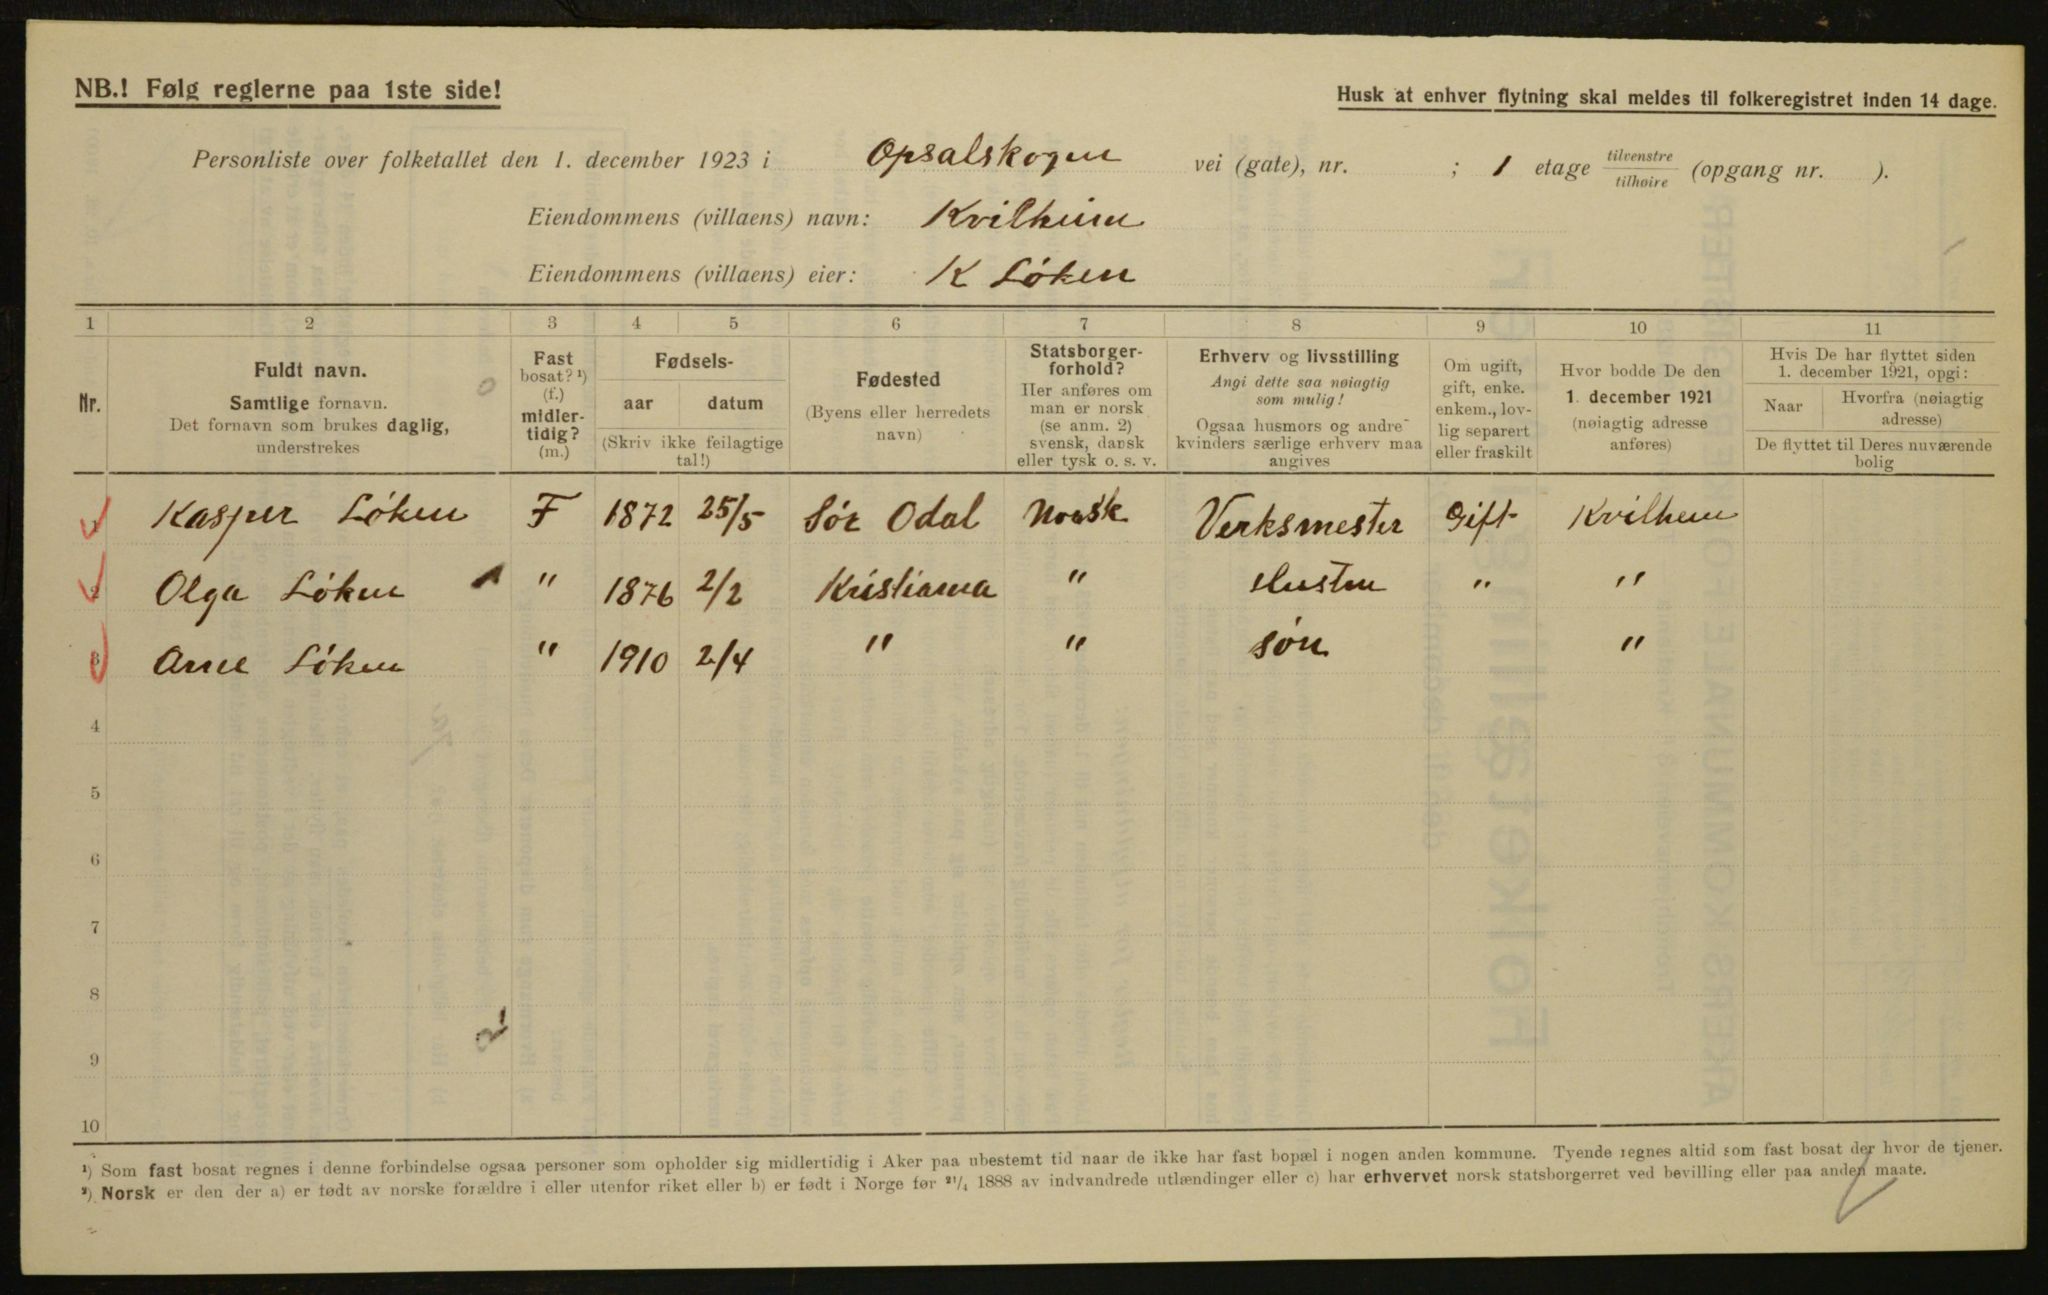 NB.! Følg reglerne paa 1ste side!
Husk at enhver flytning skal meldes til folkeregistret inden 14 dage.
Personliste over folketallet den 1. december 1923 i Opsalskogen vei (gate), nr. ; 1 etage tilvenstre tilhøire (opgang nr. ).
Eiendommens (villaens) navn: Kvilheim
Eiendommens (villaens) eier: K Løken
1 2 3 4 5 6 7 8 9 10 11
Nr.
Fuldt navn.
Samtlige fornavn.
Det fornavn som brukes daglig,
understrekes
Fast
bosat? ¹)
(f.)
midler-
tidig?
(m.)
Fødsels-
aar datum
(Skriv ikke feilagtige
tal!)
Fødested
(Byens eller herredets
navn)
Statsborger-
forhold?
Her anføres om
man er norsk
(se anm. 2)
svensk, dansk
eller tysk o. s. v.
Erhverv og livsstilling
Angi dette saa nøiagtig
som mulig!
Ogsaa husmors og andre
kvinders særlige erhverv maa
angives
Om ugift,
gift, enke.
enkem., lov-
lig separert
eller fraskilt
Hvor bodde De den
1. december 1921
(nøiagtig adresse
anføres)
Hvis De har flyttet siden
1. december 1921, opgi:
Naar
Hvorfra (nøiagtig
adresse)
De flyttet til Deres nuværende
bolig
1 Kasper Løken F 1872 25/5 Sør Odal Norsk Verksmester Gift Kvilhem
2 Olga Løken " 1876 2/2 Kristiania " Hustru " "
3 Arne Løken " 1910 2/4 " " søn "
4
5
6
7
8
9
10
2.
¹) Som fast bosat regnes i denne forbindelse ogsaa personer som opholder sig midlertidig i Aker paa ubestemt tid naar de ikke har fast bopæl i nogen anden kommune. Tyende regnes altid som fast bosat der hvor de tjener.
²) Norsk er den der a) er født av norske forældre i eller utenfor riket eller b) er født i Norge før ²¹/₄ 1888 av indvandrede utlændinger eller c) har erhvervet norsk statsborgerret ved bevilling eller paa anden maate.